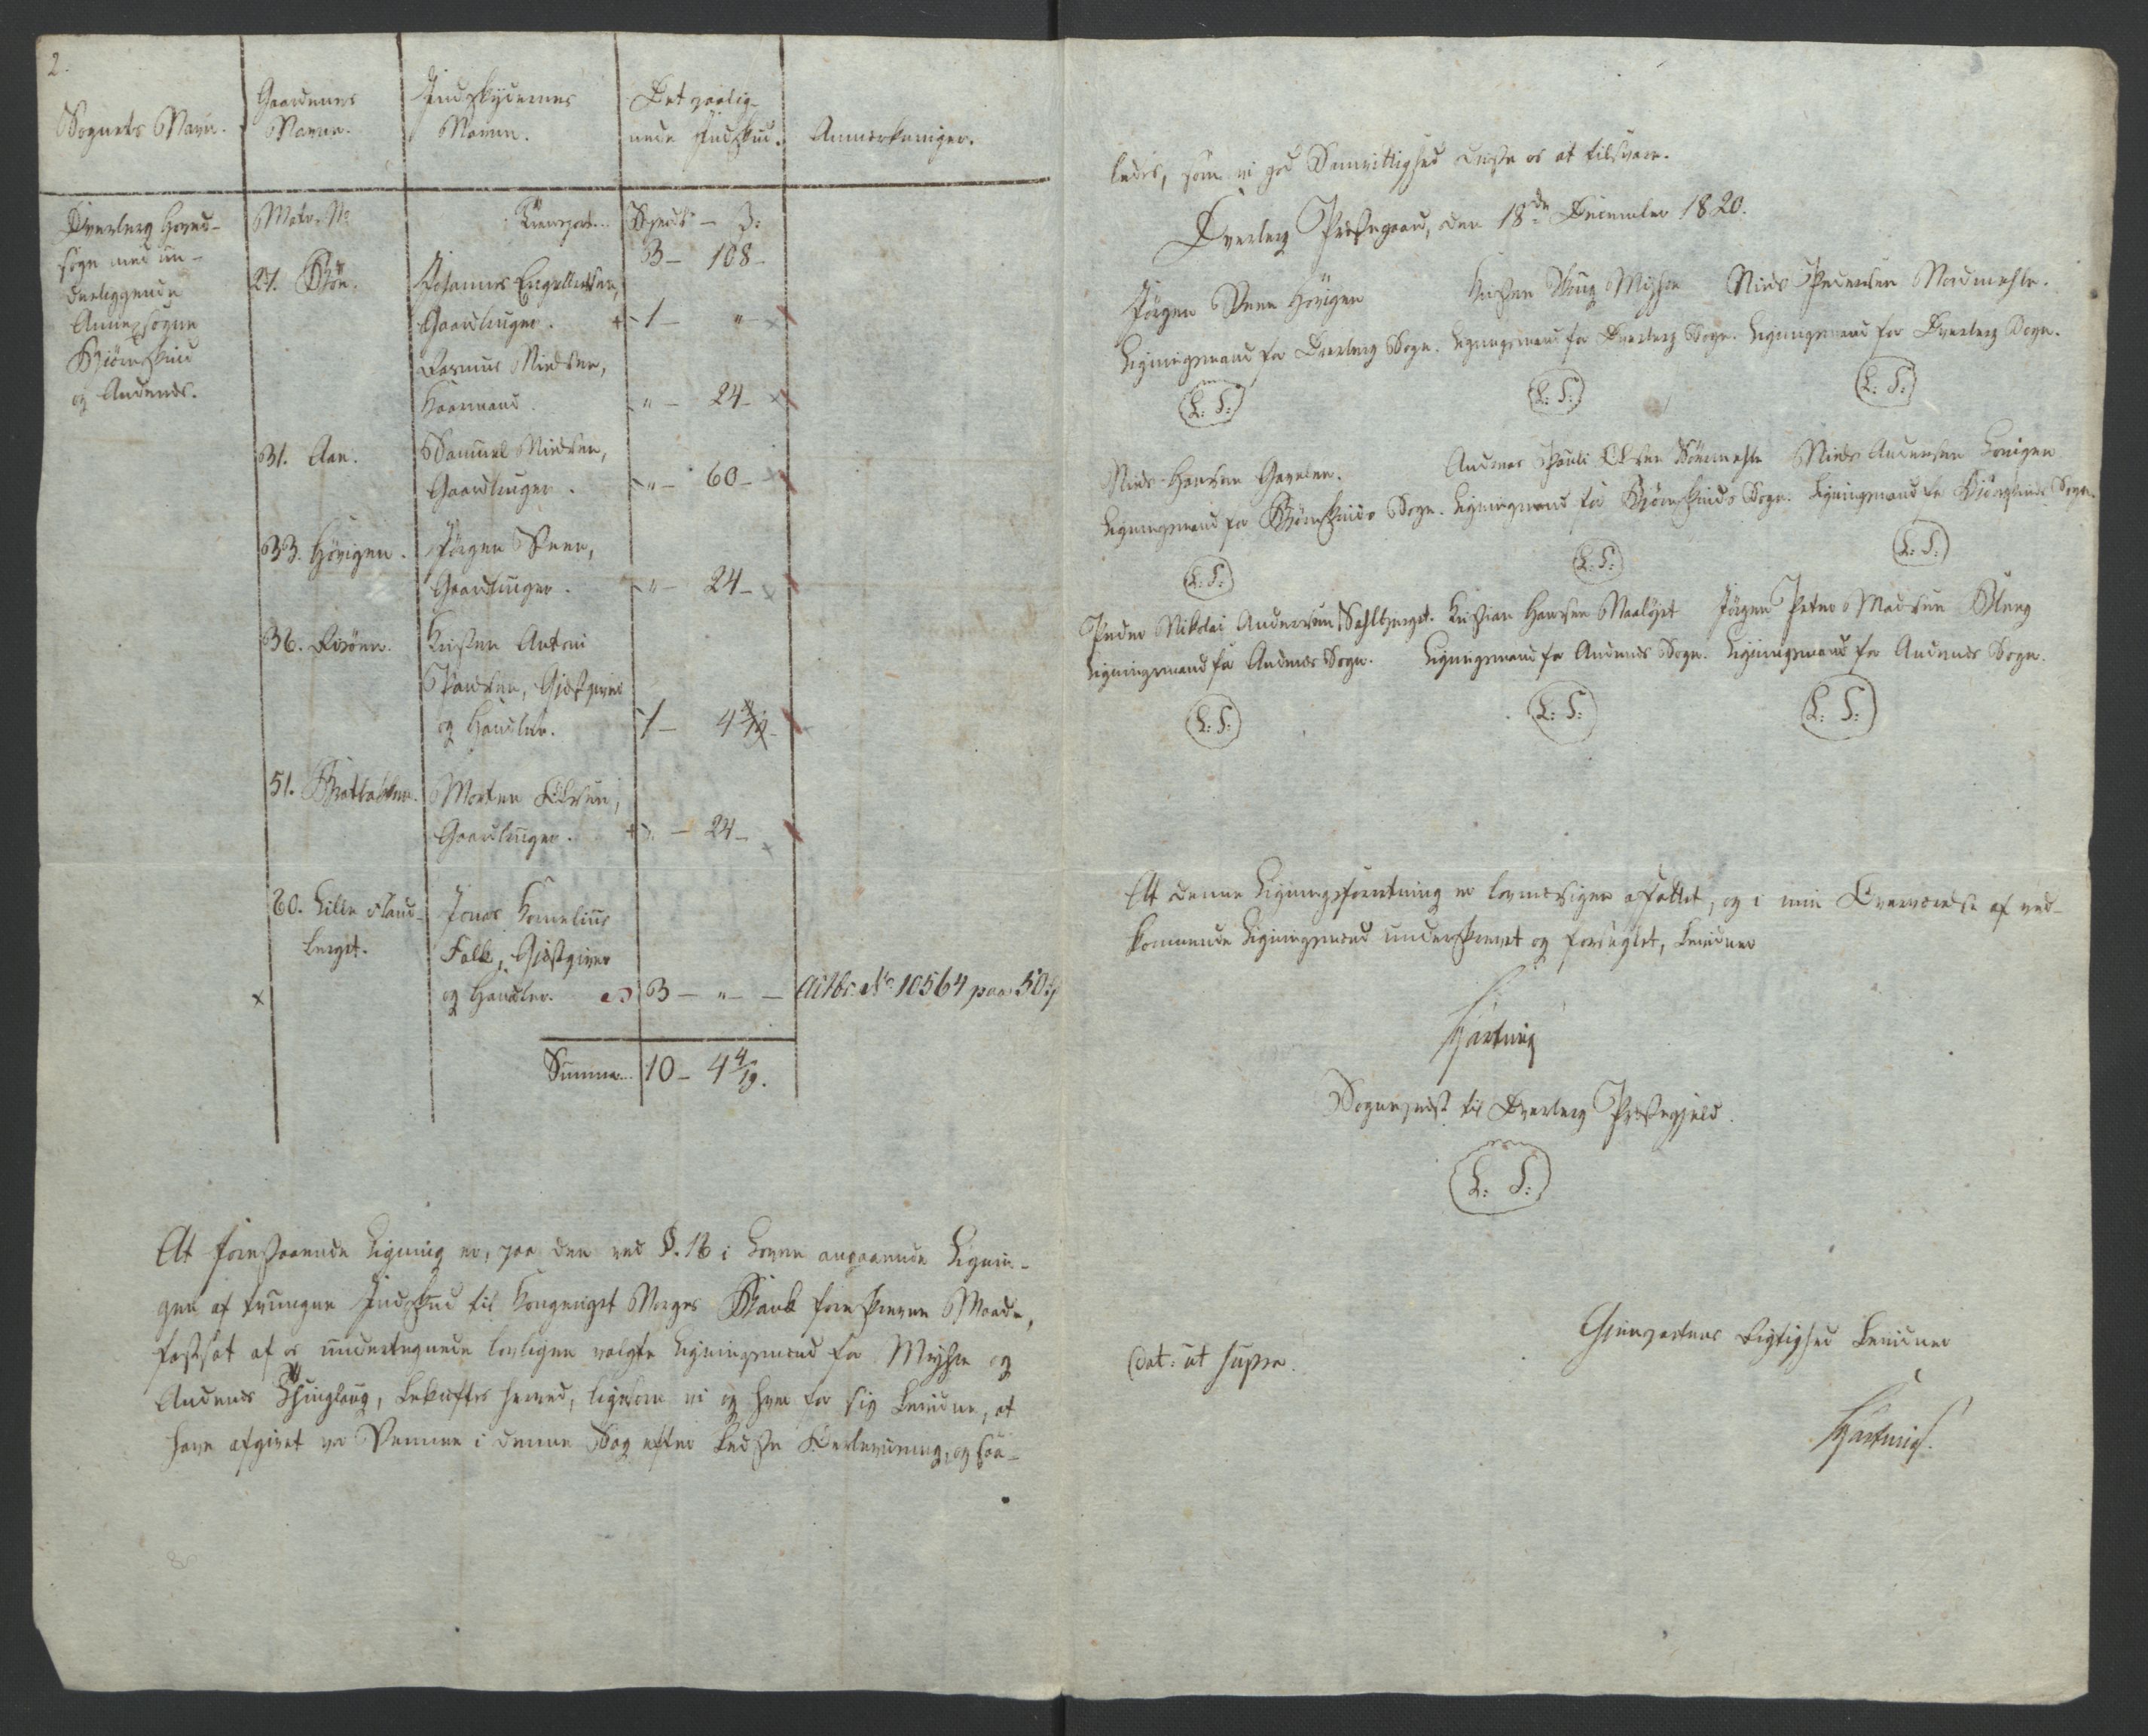 2.
Sognets Navn.
Gaardenes
Navne.
Indskydernes
Navne.
Det paalig-
nede Indskud.
Anmærkninger.
Dverberg Hoved-
sogn med un-
derliggende
Annexsogne
Bjørnskind
og Andenes.
Matr. No
Transport...
Specd. — s:
3 — 108 —
27. Bøe.
Johannes Engelbretsen,
Gaardbruger. + 1 — " —
Rasmus Nielsen,
Huusmand. " — 24 —
31. Aae.
Samuel Nielsen,
Gaardbruger. " — 60 —
33. Høvigen.
Jørgen Steen,
Gaardbruger. " — 24 —
36. Risøen.
Kristen Antoni
Paulsen, Gjæstgiver
og Handler. 1 — 4 4/19 —
51.
Morten Olsen,
Gaardbruger. + " — 24 —
60. Lille
berget.
Jonas Kornelius
Falk, Gjæstgiver
x og Handler. 3 — " — Actbr. No 10564 paa 50
Summa... 10 — 4 4/19.
At forestaaende Ligning er, paa den ved §. 16 i Loven angaaende Lignin-
gen af tvungne Indskud til Kongeriget Norges Bank foreskrevne Maade,
fastsat af os undertegnede lovligen valgte Ligningsmænd for Myhre og
Andenes Thinglaug, bekræftes herved, ligesom vi og hver for sig bevidne, at
have afgivet vor Stemme i denne Sag efter bedste Overbeviisning, og saa-
ledes, som vi god Samvittighed driste os at tilsvare.
Dverberg Præstegaard, den 18de December 1820.
Jørgen Steen Høvigen
Ligningsmand for Dverberg Sogn.
(L. S.)
Kristen Myhre
Ligningsmand for Dverberg Sogn.
(L. S.)
Niels Pedersen Nordmehle.
Ligningsmand for Dverberg Sogn.
(L. S.)
Niels Hansen Gavelen.
Ligningsmand for Bjørnskinds Sogn.
(L. S.)
Andreas Pauli Olsen Sørmehle
Ligningsmand for Bjørnskinds Sogn.
(L. S.)
Niels Andersen
Ligningsmand for Bjørnskinds Sogn.
(L. S.)
Peder Nikolai Andersen
Ligningsmand for Andenes Sogn.
(L. S.)
Kristian Hansen
Ligningsmand for Andenes Sogn.
(L: S:)
Jørgen Peter Madsen Bleng
Ligningsmand for Andenes Sogn.
(L: S:)
At denne Ligningsforretning er lovmæssigen affattet, og i min Overværelse af ved-
kommende Ligningsmænd underskrevet og forseglet, bevidner
Hartvig
Sognepræst til Dverberg Præstegjeld.
(L. S:)
Gjenpartens Rigtighed bevidner
Dat: ut supra.
Hartvig.